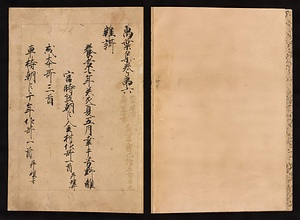 萬葉集巻第六
雜謌
養老七年癸亥夏五月幸于吉野離
宮時笠朝臣金村作哥一首并短哥
或本哥三首
車持朝臣千年作哥一首并短哥